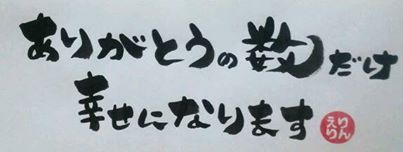 ありがとうの数だけ
幸せになります
えりりん